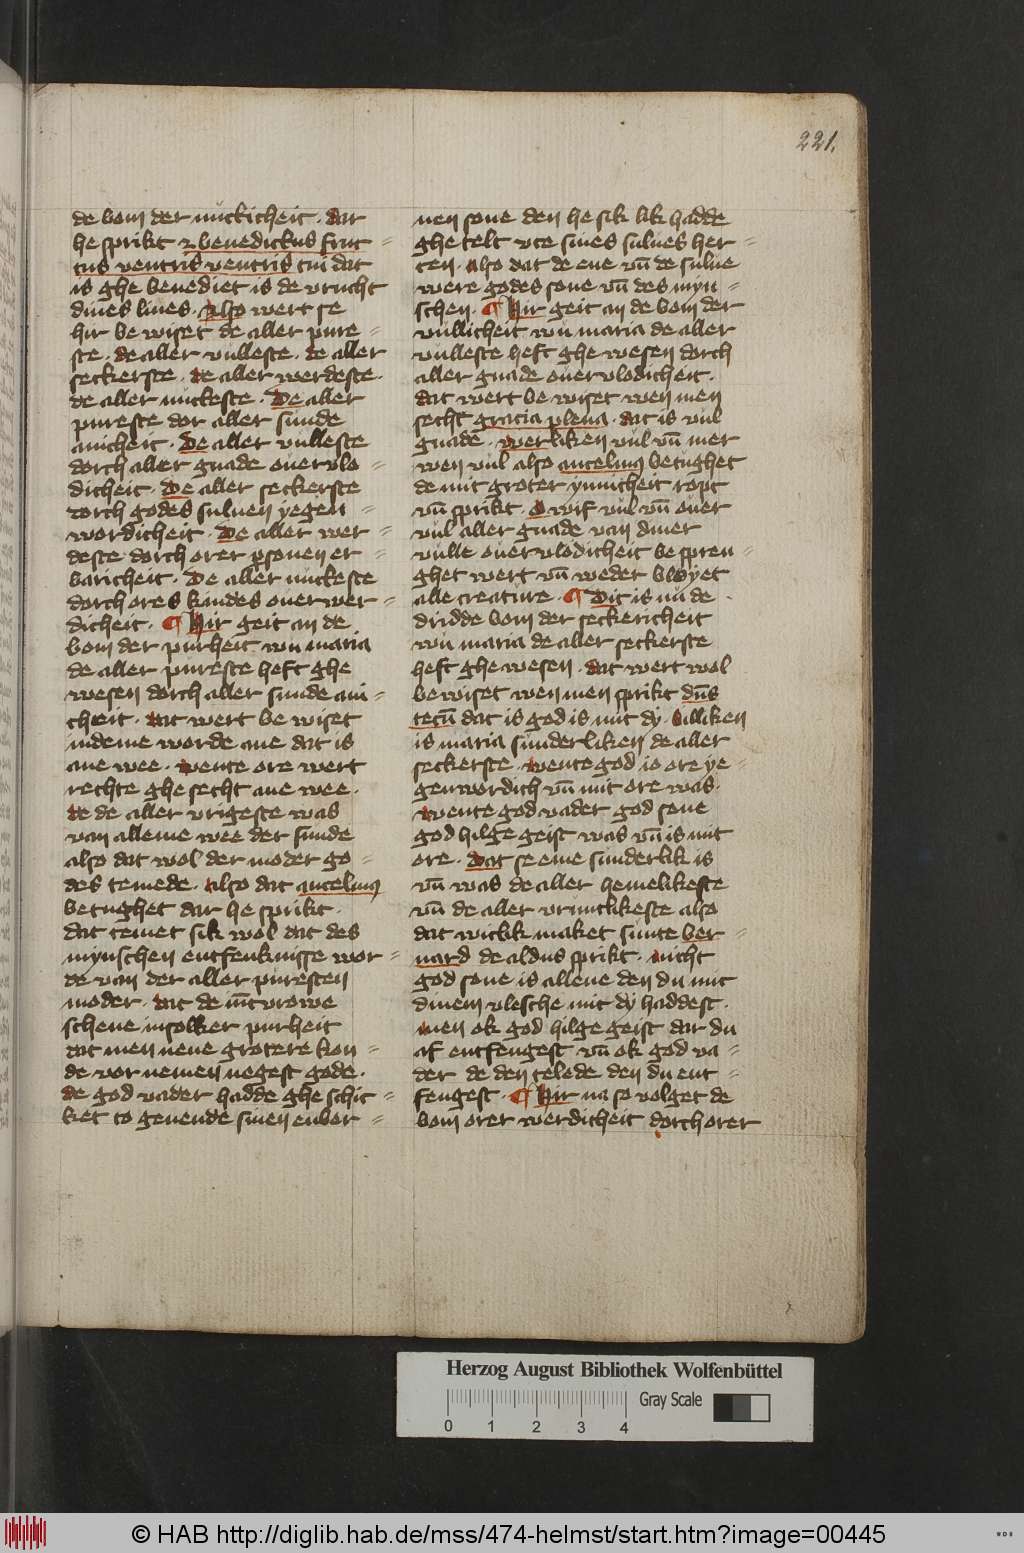 221.
de bom der nuckicheit · dar
he sprikt ⁊ benedictus fruc =
tus ventris ventris tui dat
is ghe benediet is de vrucht
dines liues · Also wert se
hir be wiset de aller pure =
ste · de aller vulleste · de aller
seckerste · de aller werdeste ·
de aller nuckeste · De aller
pureste dor aller sunde
anicheit · De aller vulleste
dorch aller gnade ouervlo =
dicheit · De aller seckerste
dorch godes suluen yegen =
wordicheit · De aller wer =
deste dorch orer psonen er =
baricheit · De aller nuckeste
dorch ores kindes ouerwer =
dicheit · ¶ Hir geit an de
bom der purheit wu maria
de aller pureste heft ghe
wesen dorch aller sunde ani =
cheit · dat wert be wiset
indeme worde aue dat is
ane wee · wente ore wert
rechte ghe secht ane wee ·
de de aller vrigeste was
van alleme wee der sunde
also dat wol der moder go =
des temede · also dat ancelmꝯ
betughet dar he sprikt ·
dat temet sik wol dat des
mynschen entfenknisse wor =
de van der aller puresten
moder · dat de iūcvrowe
schene insolker purheit
dat men nene grotere kon =
de vor nemen negest gode ·
de god vader hadde ghe schic =
ket to geuende sinen enbor =
nen sone den he sik lik hadde
ghe telt vte sines sulues her =
ten · also dat de ene vn̄ de sulue
were godes sone vn̄ des myn =
schen · ¶ Hir geit an de bom der
vullicheit wu maria de aller
vulleste heft ghe wesen dorch
aller gnade ouervlodicheit ·
dat wert be wiset wen men
secht gracia plena · dat is vul
gnade · werliken vul vn̄ mer
wen vul also ancelmꝯ betughet
de mit groter ynnicheit ropt
vn̄ sprikt · O wif vul vn̄ ouer
vul aller gnade van diner
vulle ouervlodicheit be spren =
ghet wert vn̄ weder bloyet
alle creature · ¶ Dit is nu de ·
dridde bom der seckericheit
wu maria de aller seckerste
heft ghe wesen · dat wert wol
be wiset wen men sprikt dn̄s
tecū dat is god is mit dy · billiken
is maria sunderliken de aller
seckerste · wente god io ore ye =
genwordich vn̄ mit ore was ·
wente god vader god sone
god hilge geist was vn̄ is mit
ore · Dat se eme sunderlik is
vn̄ was de aller hemelikeste
vn̄ de aller vruntlikeste also
dat witlik maket sunte ber =
nard de aldus sprikt · nicht
god sone is allene den du mit
dinem vlesche mit dy haddest ·
men ok god hilge geist dar du
af entfengest vn̄ ok god va =
der de den telede den du ent =
fengest · ¶ Hir na so volget de
bom orer werdicheit dorch orer
Herzog August Bibliothek Wolfenbüttel
Gray Scale
0 1 2 3 4
© HAB http://diglib.hab.de/mss/474-helmst/start.htm?image=00445
WDB